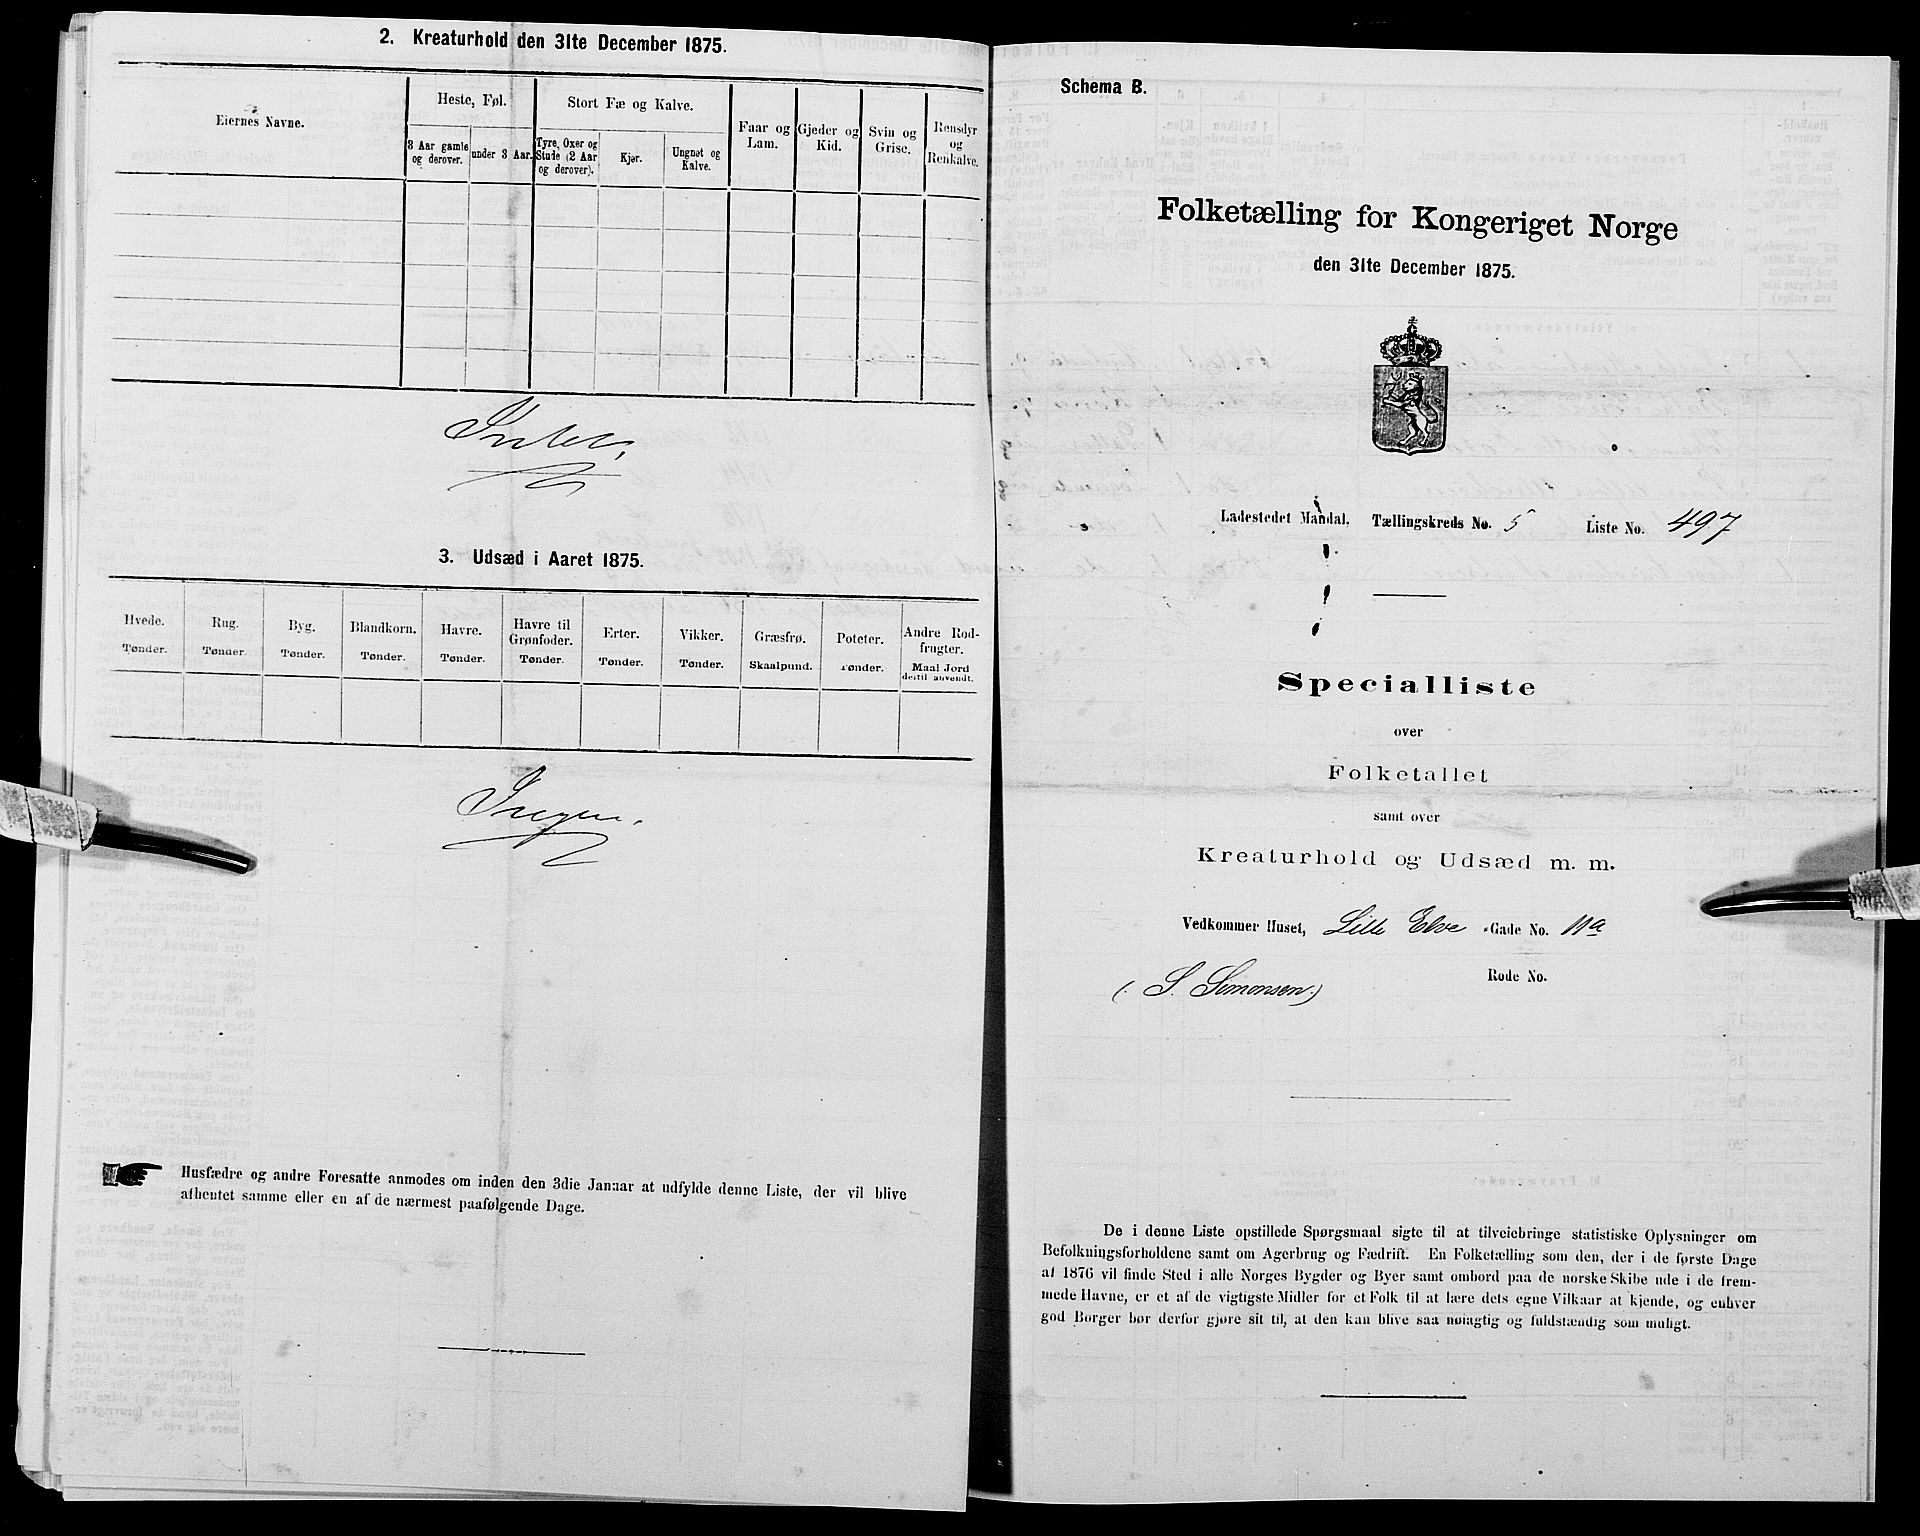 2. Kreaturhold den 31te December 1875.
Eiernes Navne.
Heste, Føl.
Stort Fæ og Kalve.
Faar og Lam.
Gjeder og Kid.
Svin og Grise.
Rensdyr og Renkalve.
3 Aar gamle og derover.
under 3 Aar.
Tyre, Oxer og Stude (2 Aar og derover).
Kjør.
Ungnøt og Kalve.
Intet.
3. Udsæd i Aaret 1875.
Hvede.
Rug.
Byg.
Blandkorn.
Havre.
Havre til Grønfoder.
Erter.
Vikker.
Græsfrø.
Poteter.
Andre Rodfrugter.
Tønder.
Tønder.
Tønder.
Tønder.
Tønder.
Tønder.
Tønder.
Tønder.
Skaalpund.
Tønder.
Maal Jord dertil anvendt.
Ingen.
Husfædre og andre Foresatte anmodes om inden den 3die Januar at udfylde denne Liste, der vil blive
afhentet samme eller en af de nærmest paafølgende Dage.
Schema B.
Folketælling for Kongeriget Norge
den 31te December 1875.
Ladestedet Mandal. Tællingskreds No. 5 Liste No. 497
Specialliste
over
Folketallet
samt over
Kreaturhold og Udsæd m. m.
Vedkommer Huset, Lille Elve -Gade No. 11a
(: S. Simonsen :) Rode No.
De i denne Liste opstillede Spørgsmaal sigte til at tilveiebringe statistiske Oplysninger om
Befolkningsforholdene samt om Agerbrug og Fædrift. En Folketælling som den, der i de første Dage
af 1876 vil finde Sted i alle Norges Bygder og Byer samt ombord paa de norske Skibe ude i de frem-
mede Havne, er et af de vigtigste Midler for et Folk til at lære dets egne Vilkaar at kjende, og enhver
god Borger bør derfor gjøre sit til, at den kan blive saa nøiagtig og fuldstændig som muligt.